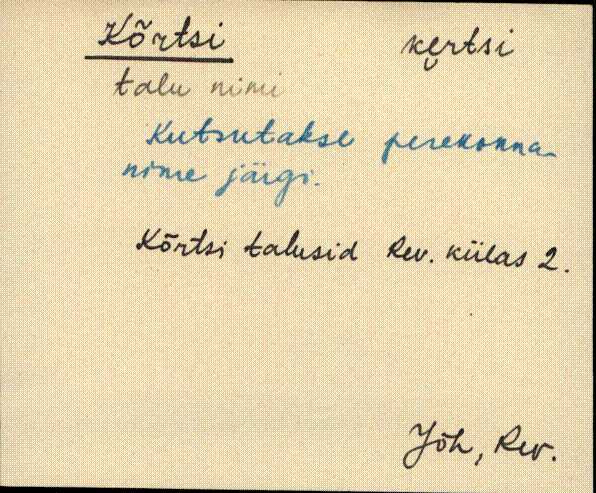 Kõrtsi kęrtsi
talu nimi
Kutsutakse perekonna-
nime järgi.
Kõrtsi talusid Rev. külas 2.
Jõh, Rev.